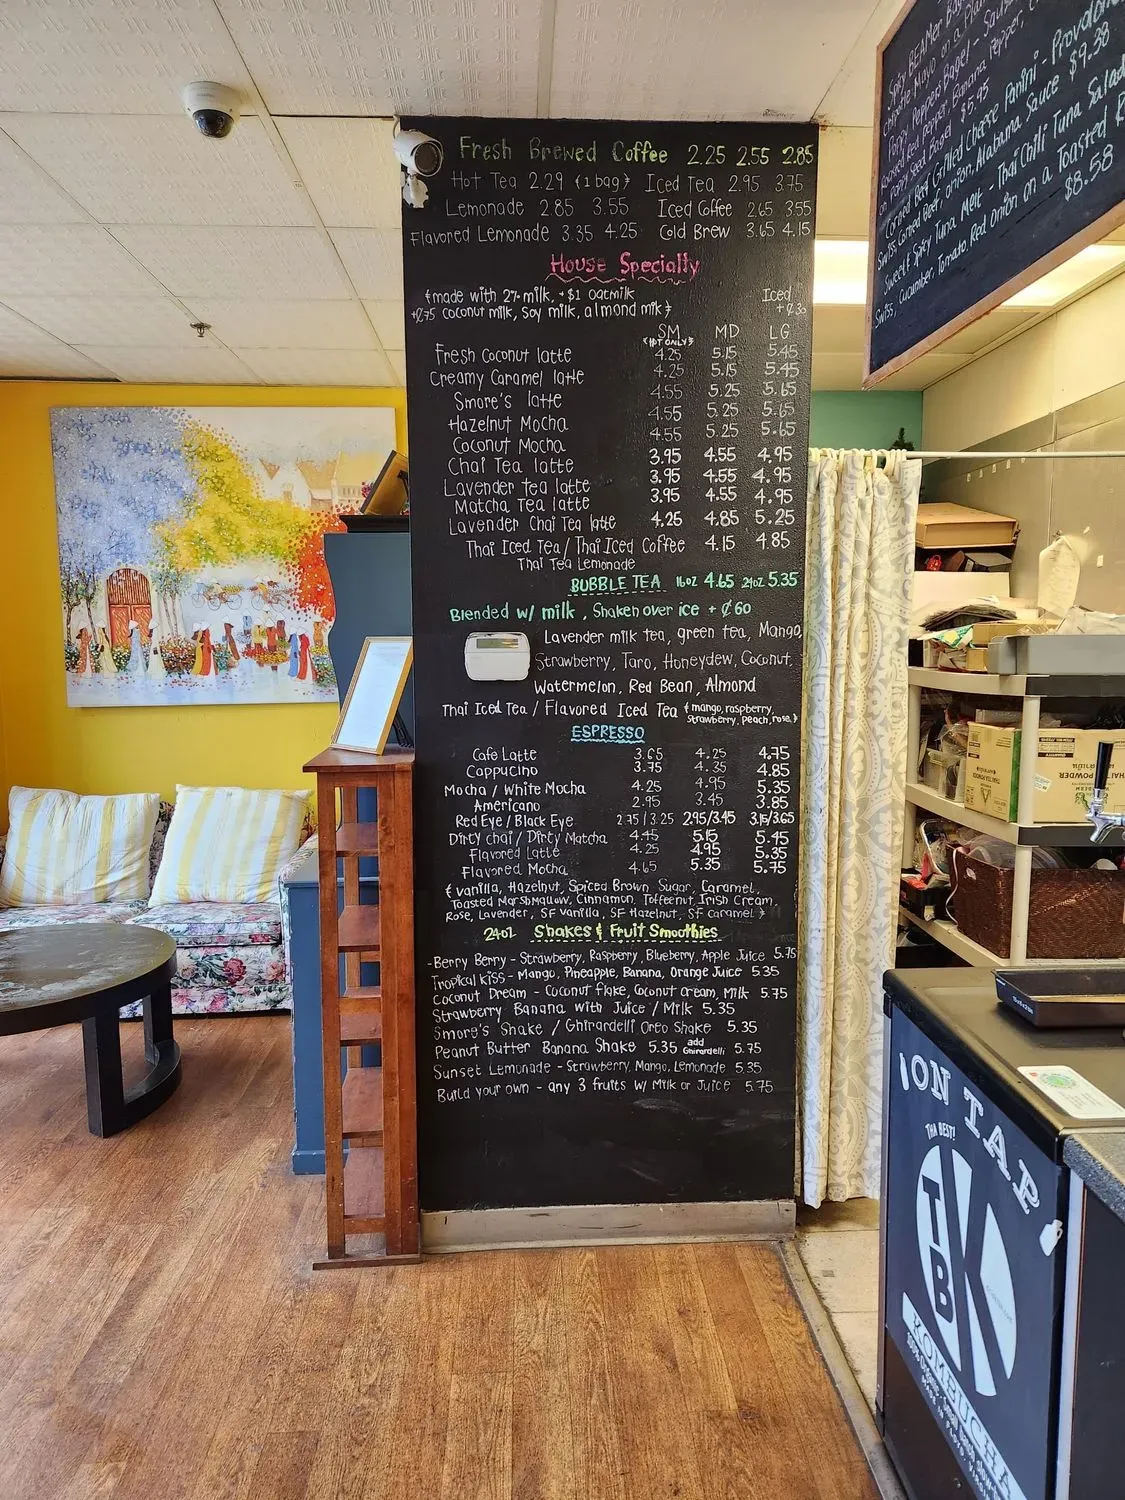 Fresh Brewed Coffee 2.25 2.55 2.85
Hot Tea 2.29 {1 bag} Iced Tea 2.95 3.75
Lemonade 2.85 3.55 Iced Coffee 2.65 3.55
Flavored Lemonade 3.35 4.25 Cold Brew 3.65 4.15
House Specialty
{made with 2% milk, +$1 oatmilk Iced
+¢75 coconut milk, soy milk, almond milk}
SM MD LG
{HOT ONLY}
Fresh Coconut latte 4.25 5.15 5.45
Creamy Caramel latte 4.25 5.15 5.45
Smore's latte 4.55 5.25 5.65
Hazelnut Mocha 4.55 5.25 5.65
Coconut Mocha 4.55 5.25 5.65
Chai Tea latte 3.95 4.55 4.95
Lavender tea latte 3.95 4.55 4.95
Matcha Tea latte 3.95 4.55 4.95
Lavender Chai Tea latte 4.25 4.85 5.25
Thai Iced Tea / Thai Iced Coffee 4.15 4.85
Thai Tea Lemonade
BUBBLE TEA 16oz 4.65 24oz 5.35
Blended w/ milk, Shaken over ice + ¢60
Lavender milk tea, green tea, Mango,
Strawberry, Taro, Honeydew, Coconut,
Watermelon, Red Bean, Almond
Thai Iced Tea / Flavored Iced Tea {mango, raspberry,
strawberry, peach, rose,}
ESPRESSO
Cafe Latte 3.65 4.25 4.75
Cappucino 3.75 4.35 4.85
Mocha / White Mocha 4.25 4.95 5.35
Americano 2.95 3.45 3.85
Red Eye / Black Eye 2.75/3.25 2.95/3.45 3.15/3.65
Dirty chai / Dirty Matcha 4.45 5.15 5.45
Flavored Latte 4.25 4.95 5.35
Flavored Mocha 4.65 5.35 5.75
{vanilla, Hazelnut, Spiced Brown Sugar, Caramel,
Toasted Marshmallow, Cinnamon, Toffeenut, Irish Cream,
Rose, Lavender, SF vanilla, SF Hazelnut, SF caramel}
24oz Shakes & Fruit Smoothies
-Berry Berry - Strawberry, Raspberry, Blueberry, Apple Juice 5.75
Tropical kiss - Mango, Pineapple, Banana, Orange Juice 5.35
Coconut Dream - Coconut flake, Coconut cream, Milk 5.75
Strawberry Banana with Juice / Milk 5.35
Smore's Shake / Ghirardelli Oreo Shake 5.35
Peanut Butter Banana Shake 5.35 add Ghirardelli 5.75
Sunset Lemonade - Strawberry, Mango, Lemonade 5.35
Build your own - any 3 fruits w/ Milk or Juice 5.75
Poppy Seed Bagel $5.95
Corned Beef Grilled Cheese Panini - Provolone
Swiss, Corned Beef, Onion, Alabama Sauce $9.38
Sweet & Spicy Tuna Melt - Thai Chili Tuna Salad
Swiss, Cucumber, Tomato, Red Onion on a Toasted
$8.58
ON TAP
THA BEST!
TBK
KOMBUCHA